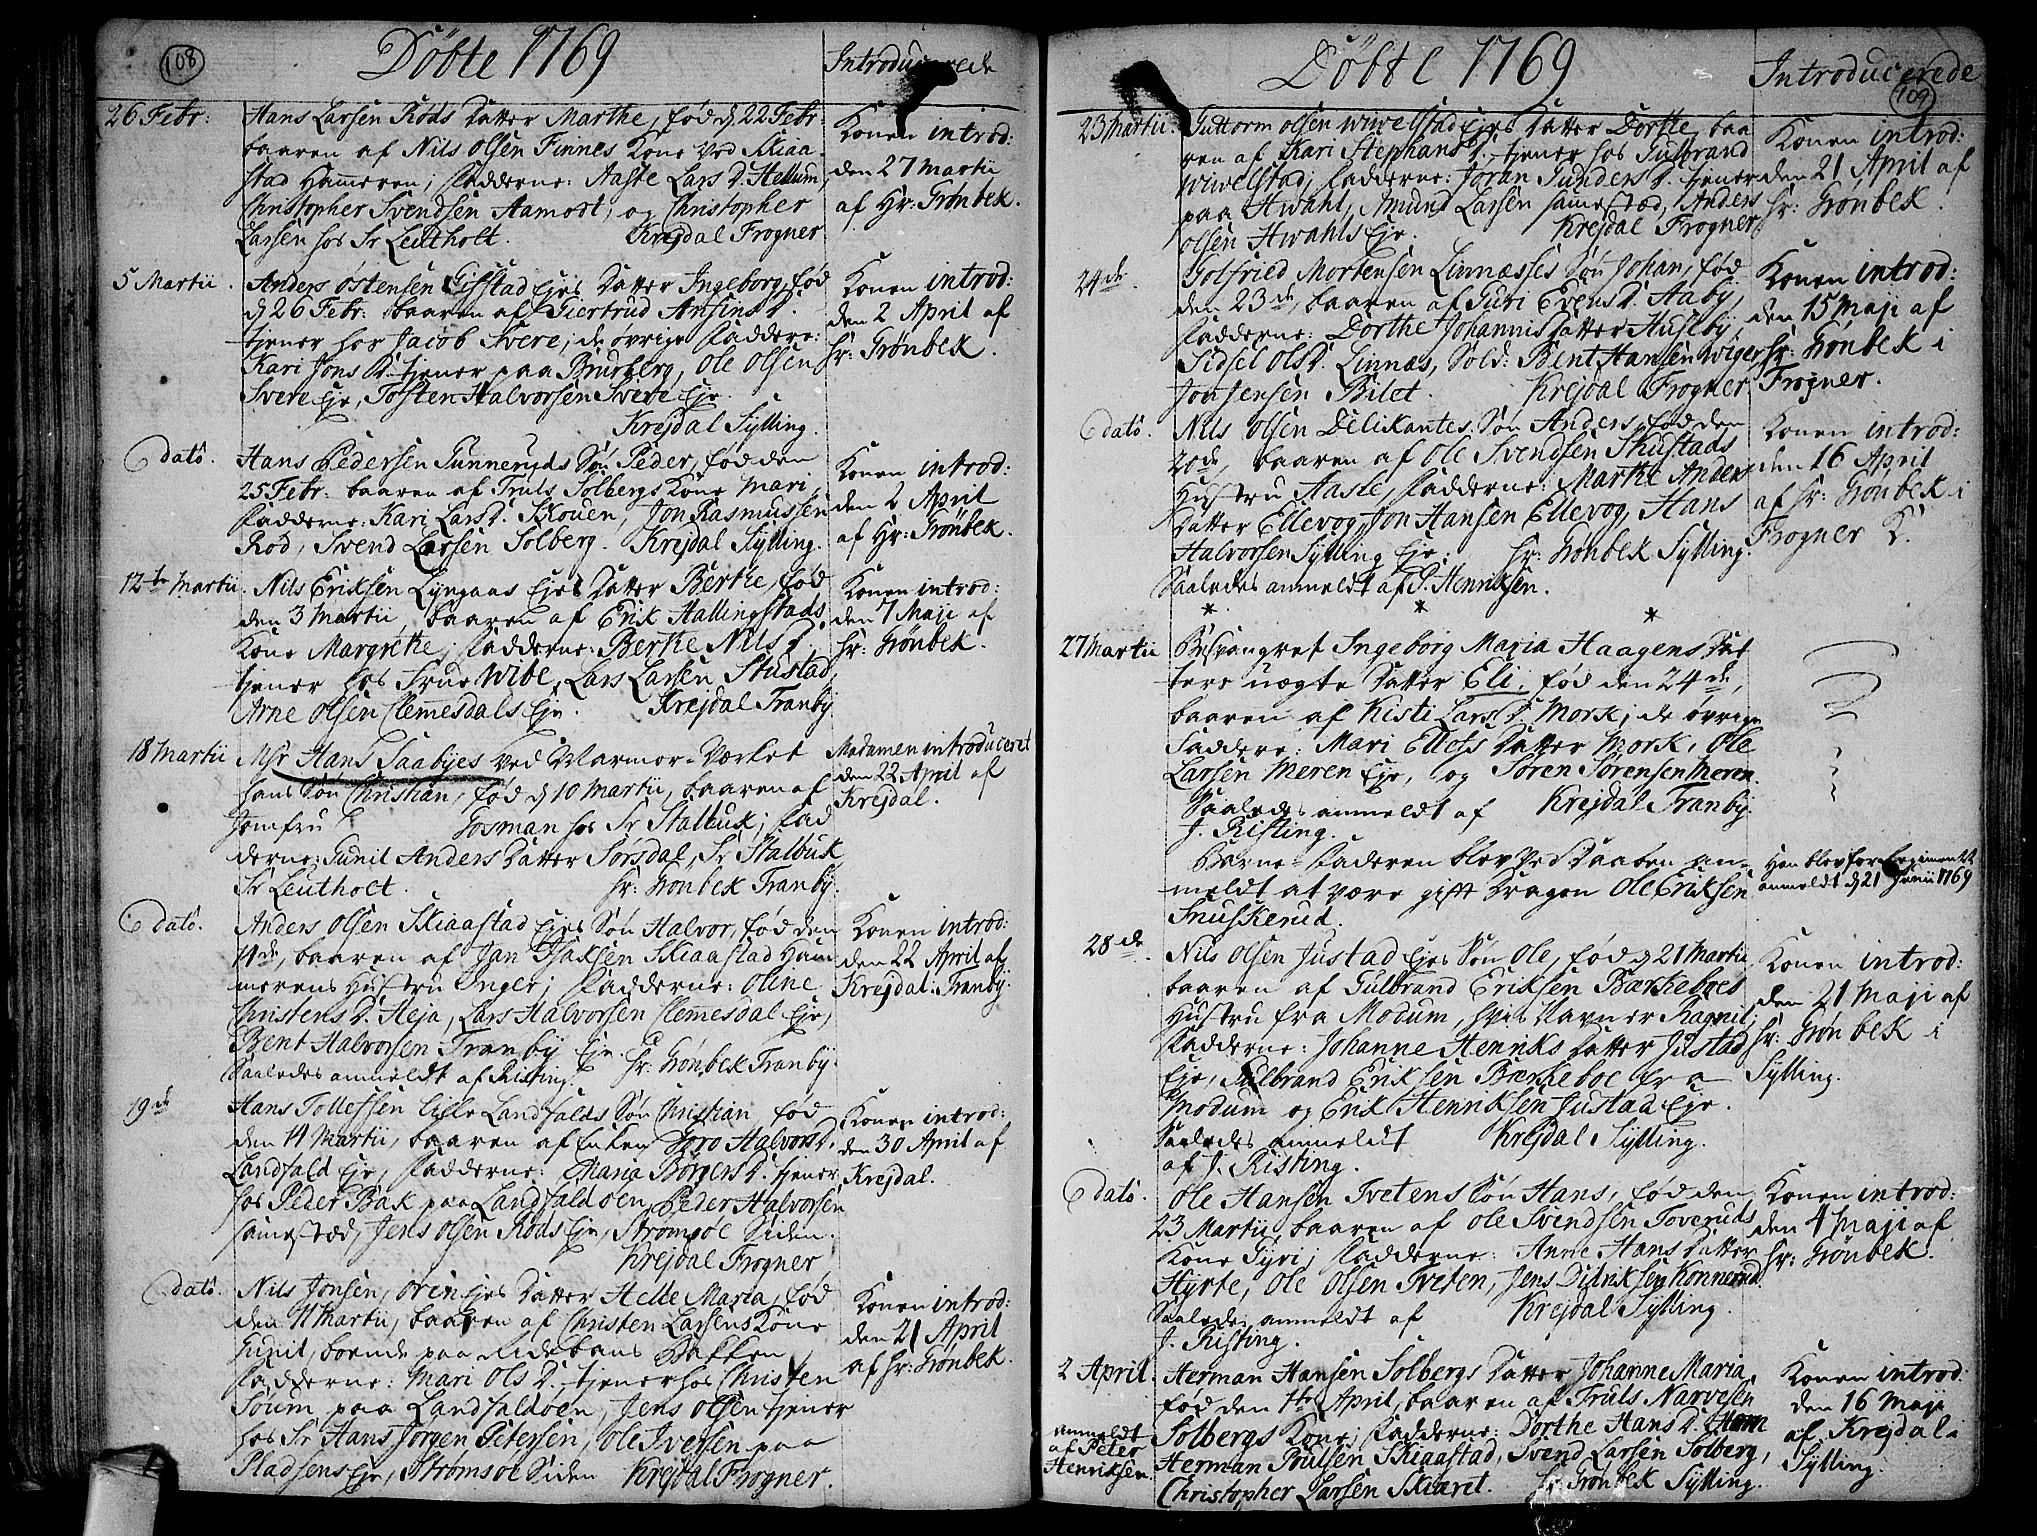 108
Döbte 1769
Introducerede
26 Febr:
Hans Larsen Röds Datter Marthe, föd d 22 Febr:
baaren af Nils Olsen Finnes Kone ved Skiaa
stad Hammeren; Fadderne: Aaste Lars D. Hellum,
Christopher Svendsen Aamodt, og Christopher
Larsen hos Sr Leutholt. Krejdal Frogner
Konen introd:
den 27 Martii
af Hr: Grönbek.
5 Martii.
Anders Östensen Gifstad Ejes Datter Ingeborg, föd
d 26 Febr: baaren af Giertrud Ansins D.
tjener hos Jacob Svere; de övrige Faddere:
Kari Jons D. tjener paa Brurberg, Ole Olsen
Svere Eje, Tosten Halvorsen Svere Eje.
Krejdal Sylling.
Konen introd:
den 2 April af
Hr: Grönbek.
dato.
Hans Pedersen Gunneruds Sön Peder, föd den
25 Febr: baaren af Truls Solbergs Kone Mari,
Fadderne: Kari Lars D. Skouen, Jon Rasmussen
Röd, Svend Larsen Solberg. Krejdal Sylling.
Konen introd:
den 2 April
af Hr: Grönbek.
12te Martii.
Nils Eriksen Lyngaas Ejes Datter Berthe, föd
den 3 Martii, baaren af Erik Hallingstads
Kone Margrethe; Fadderne: Berthe Nils D.
tjener hos Frue Wibe, Lars Larsen Stustad,
Arne Olsen Clemmesdals Eje. Krejdal Tranby
Konen introd:
den 7 Maji af
Hr: Grönbek.
18 Martii
Msr Hans Saabyes ved Marmor-Værket
hans Sön Christian, föd d 10 Martii, baaren af
Jomfru C Gosman hos Sr Stalbuk; Fad
derne: Gunil Anders Datter Sörsdal, Sr Stalbuk,
Sr Leutholt. Hr: Grönbek Tranby.
Madamen introduceret
den 22 April af
Krejdal.
dato.
Anders Olsen Skiaastad Ejes Sön Halvor, föd den
14de, baaren af Jan Isaksen Skiaastad Ham
merens Hustru Inger; Fadderne: Oline
Christens D. Heja, Lars Halvorsen Clemesdal Eje,
Bent Halvorsen Tranby Eje. Hr: Grönbek Tranby.
Saaledes anmeldt af Risting.
Konen introd:
den 22 April af
Krejdal: Tranby.
19de
Hans Tollefsen Lille Landfalds Sön Christian, föd
den 14 Martii, baaren af Enken Goro Halvors D.
Landfald Eje, Fadderne: Maria Börgers D. tjener
hos Peder Bak paa Landfaldöen, Peder Halvorsen
samestæd, Jens Olsen Röds Eje, Strömsöe Siden.
Krejdal Frogner
Konen introd:
den 30 April af
Krejdal.
dato.
Nils Jonsen, Oren Ejes Datter Helle Maria, föd
den 11 Martii, baaren af Christen Larsens Kone
Gunil, boende paa Ridebans Bakken,
Fadderne: Mari Ols D. tjener hos Christen
Söum paa Landfaldöen, Jens Olsen tjener
hos Sr Hans Jörgen Petersen, Ole Iversen paa
Pladsens Eje, Strömsöe Siden Krejdal Frogner.
Konen introd:
den 21 April
af Hr: Grönbek.
109
Döbte 1769
Introducerede
23 Martii.
Guttorm Olsen Wivelstad Ejes Datter Dorthe, baa
ren af Kari Stephans D. tjener hos Gulbrand
Wivelstad; Fadderne: Joran Gunders D. tjener
paa Hwahl, Amund Larsen samestæd, Anders
Olsen Hwahls Eje. Krejdal Frogner.
Konen introd:
den 21 April af
Hr: Grönbek.
24de.
Gotfried Mortensen Linnæsses Sön Johan, föd
den 23de, baaren af Guri Evens D. Aaby,
Fadderne: Dorthe Johannis Datter Huseby,
Sidsel Ols D. Linnæs, Sold: Bent Hansen Wiger,
Jon Jensen Bilet. Krejdal Frogner.
Konen introd:
den 15 Maji af
Hr: Grönbek i
Frogner.
dato.
Nils Olsen Delikantes Sön Anders, föd den
20de, baaren af Ole Svendsen Skustads
Hustru Aaste, Fadderne: Marthe Anders
Datter Ellevog, Jon Hansen Ellevog, Hans
Halvorsen Sylling Eje. Hr: Grönbek Sylling.
Saaledes anmeldt af P. Henriksen.
Konen introd:
den 16 April
af Hr: Grönbek i
Frogner K.
* * *
27 Martii
Besvangret Ingeborg Maria Haagens Dat
ters uægte Datter Eli; föd den 24de,
baaren af Kisti Lars D. Mork; de övrige
Faddere: Mari Ellefs Datter Mork, Ole
Larsen Meren Eje, og Sören Sörensen Meren.
Saaledes anmeldt af Krejdal Tranby.
J. Risting.
Barne-Faderen blev ved Daaben an-
meldt at være gifft Dragon Ole Eriksen
Snuskerud.
Han blev for Regimentet
anmeldt d 21 Junii 1769
28de.
Nils Olsen Justad Ejes Sön Ole, föd d 21 Martii
baaren af Gulbrand Eriksen Bærkeboes
Hustru fra Modum, hvis Navn er Ragnil;
Fadderne: Johanne Henriks Datter Justad
Eje, Gulbrand Eriksen Bærkeboe fra
Modum og Erik Henriksen Justad Eje.
Saaledes anmeldt Krejdal Sylling.
af J. Risting.
Konen introd:
den 21 Maji af
Hr: Grönbek i
Sylling.
dato.
Ole Hansen Tvetens Sön Hans, föd den
23 Martii, baaren af Ole Svendsen Toveruds
Kone Gyri; Fadderne: Anne Hans Datter
Hyrte, Ole Olsen Tveten, Jens Didriksen Konnerud.
Saaledes anmeldt af Krejdal Sylling.
J. Risting.
Konen introd:
den 4 Maji af
Hr: Grönbek.
2 April.
Herman Hansen Solbergs Datter Johanne Maria,
föd den 1te April, baaren af Truls Narvesen
Solbergs Kone; Fadderne: Dorthe Hans D. Horn
Herman Poulsen Skiaastad, Svend Larsen Solberg,
Christopher Larsen Skiæret. Hr: Grönbek Sylling.
anmeldt
af Peter
Henriksen.
Konen introd:
den 16 Maji
af Krejdal i
Sylling.